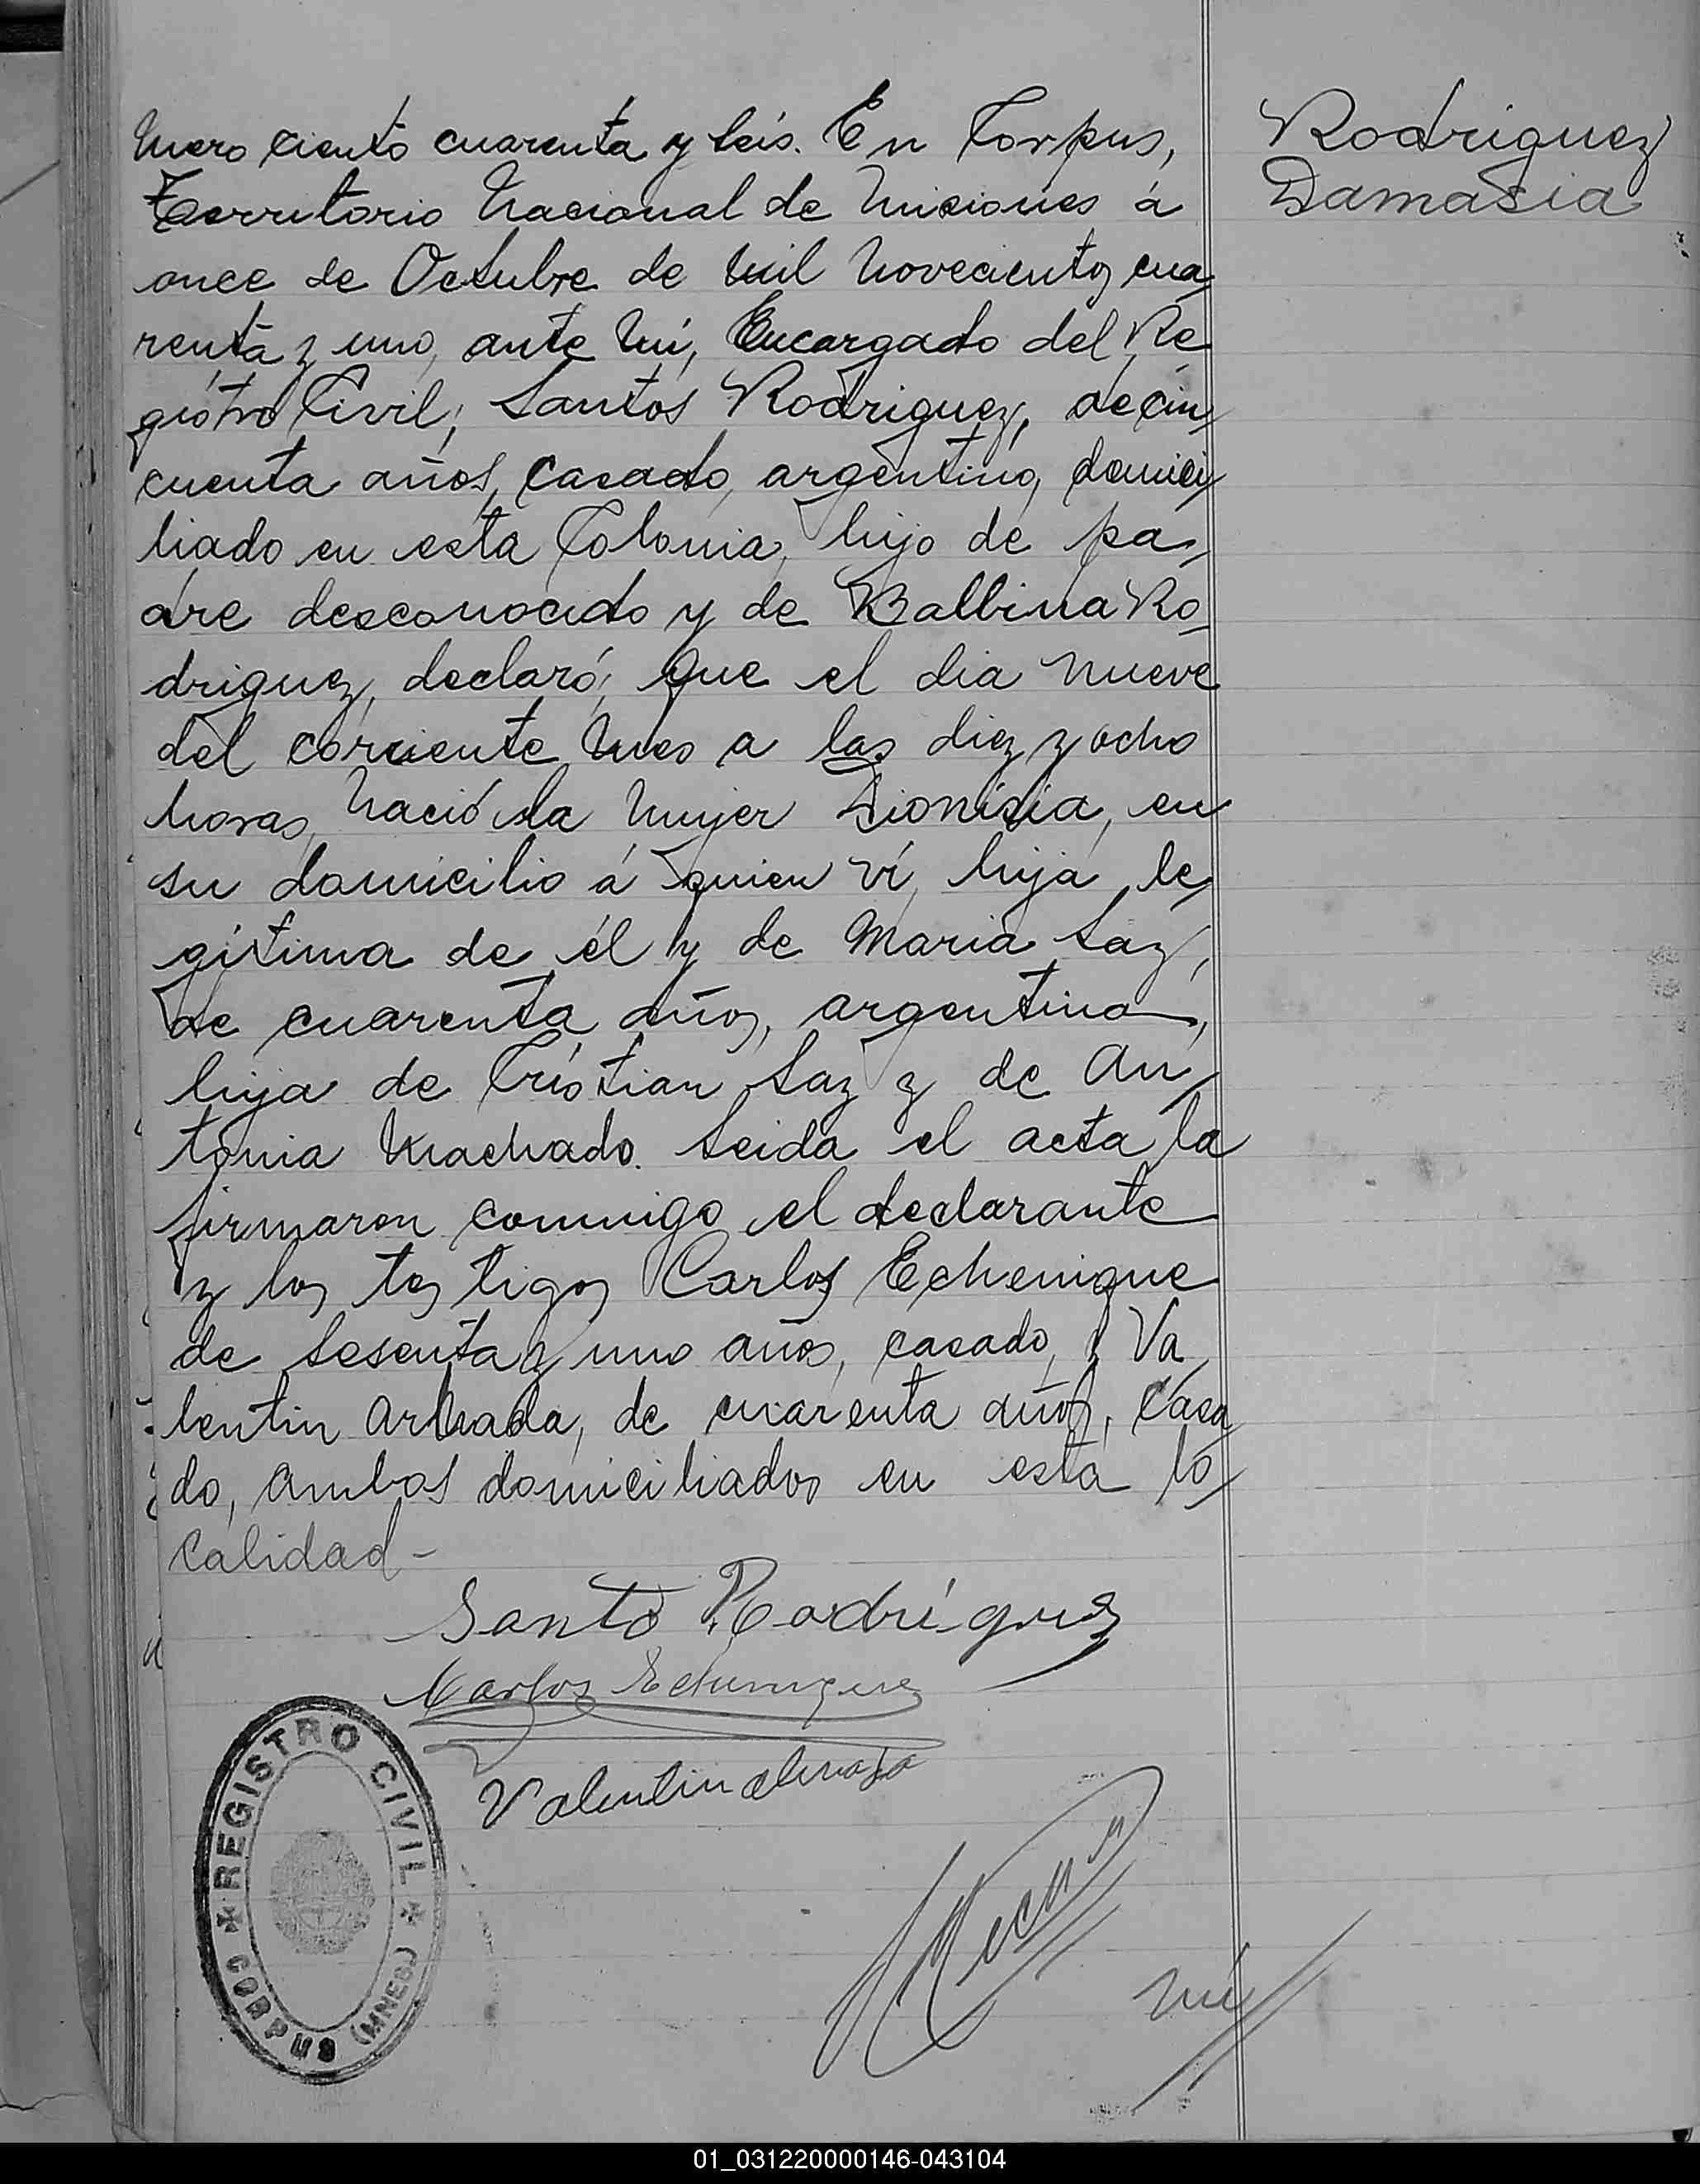 mero ciento cuarenta y seis. En Corpus,
Territorio Nacional de Misiones á
once de Octubre de mil novecientos cua
renta y uno, ante mí, Encargado del Re
gistro Civil; Santos Rodriguez, de cin
cuenta años, casado, argentino, domici
liado en esta Colonia, hijo de pa
dre desconocido y de Balbina Ro
driguez, declaró; que el dia nueve
del corriente mes a las diez y ocho
horas, nació la mujer Dionisia, en
su domicilio á quien ví, hija le
gítima de él y de Maria Saz,
de cuarenta años, argentina,
hija de Cristian Saz y de An
tonia Machado. Leida el acta la
firmaron conmigo el declarante
y los testigos Carlos Echenique
de sesenta y uno años, casado, y Va
lentin Armada, de cuarenta años, casa
do, ambos domiciliados en esta lo
calidad-
Santo Rodríguez
Carlos Echenique
Valentin
mí
Rodriguez
Damasia
REGISTRO CIVIL
CORPUS (MNES)
01_031220000146-043104